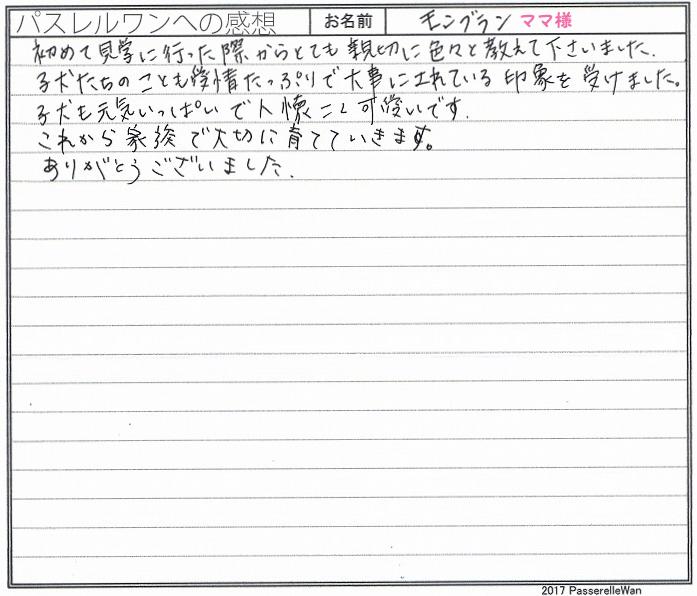 パスレルワンへの感想 お名前 モンブラン ママ様
初めて見学に行った際からとても親切に色々と教えて下さいました.
子犬たちのことも愛情たっぷりで大事にされている印象を受けました。
子犬も元気いっぱいで人懐こく可愛いです.
これから家族で大切に育てていきます。
ありがとうございました.
2017 PasserelleWan